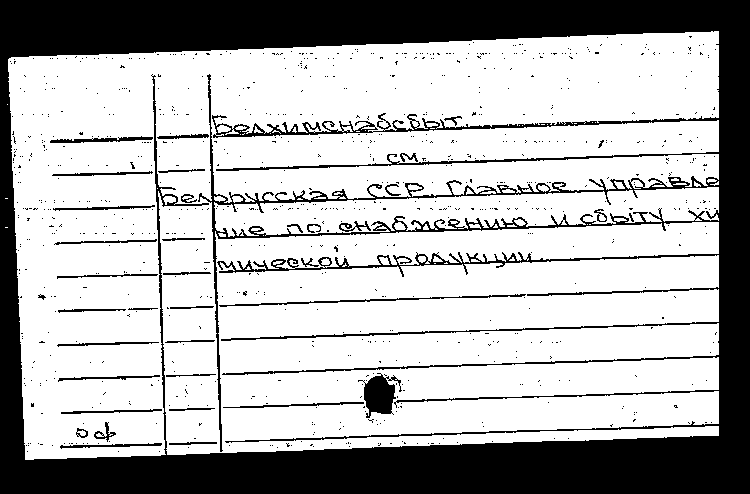 Белхимснабсбыт.
см.
Белорусская ССР. Главное управле
ние по снабжению и сбыту хи
мической продукции.
оф